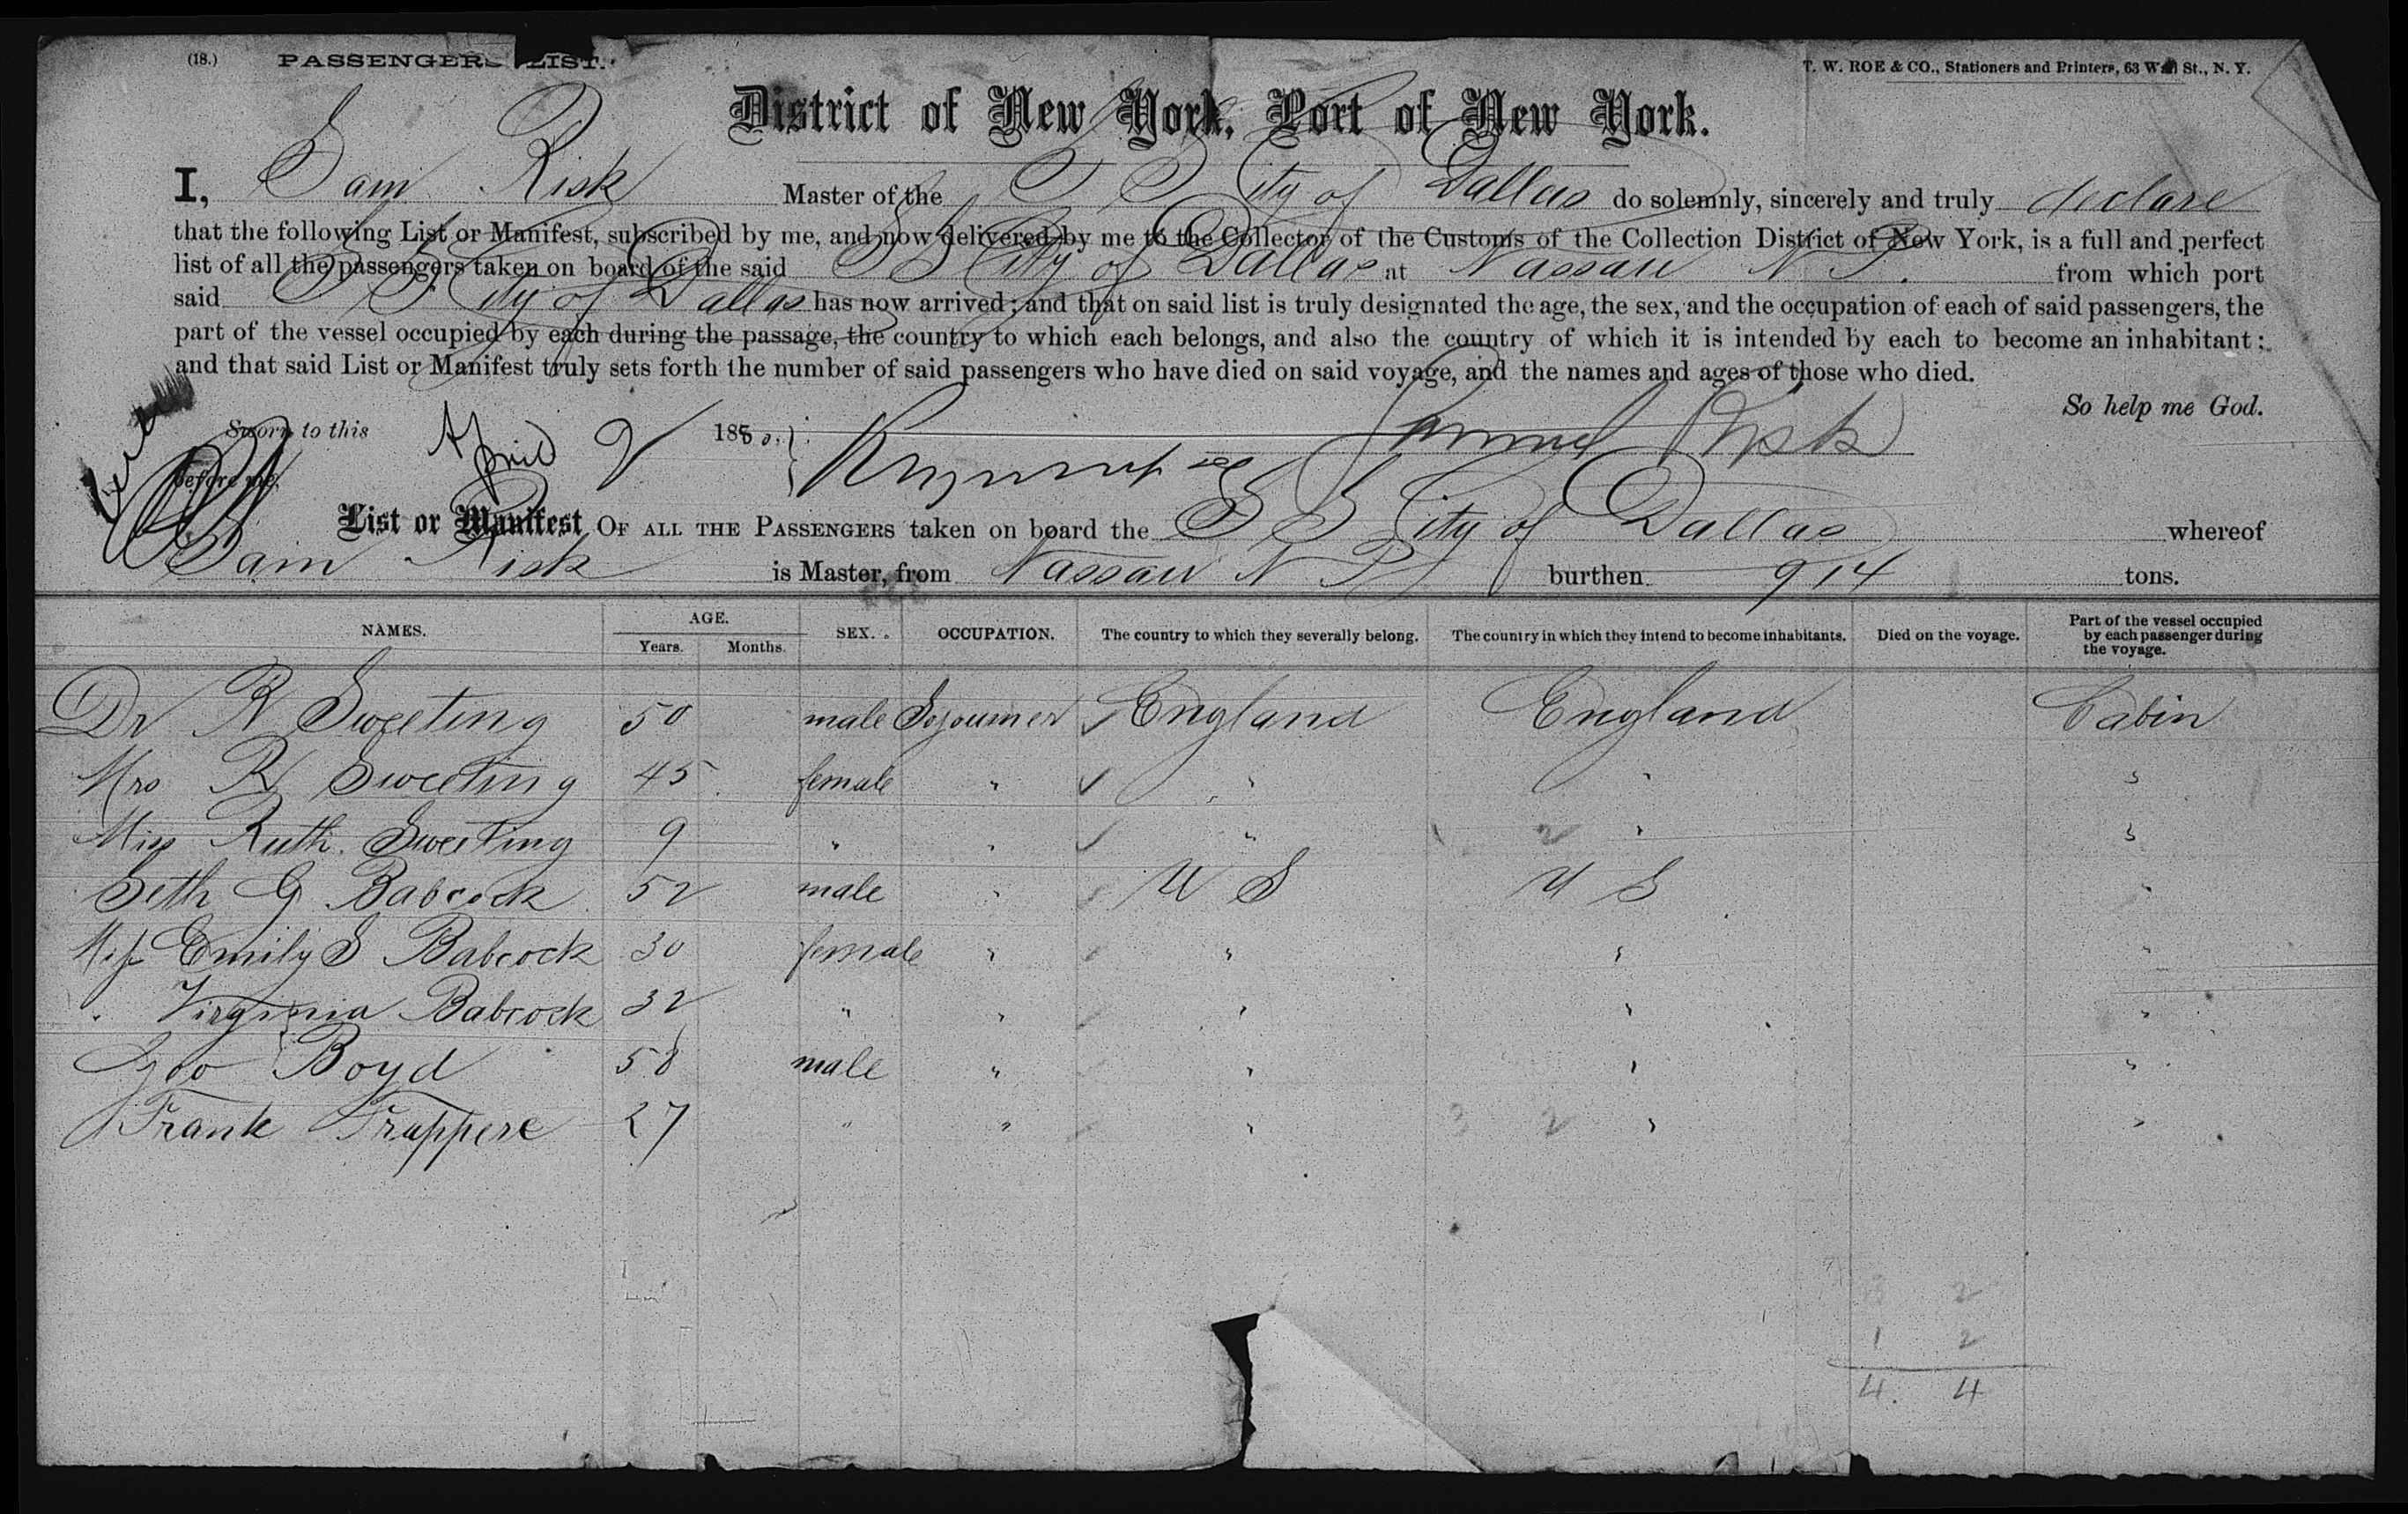 (18.) PASSENGERS LIST.
T. W. ROE & CO., Stationers and Printers, 63 Wall St., N. Y.
District of New York, Port of New York.
I, Sam Risk Master of the S S City of Dallas do solemnly, sincerely and truly declare
that the following List or Manifest, subscribed by me, and now delivered by me to the Collector of the Customs of the Collection District of New York, is a full and perfect
list of all the passengers taken on board of the said S S City of Dallas at Nassau N P. from which port
said S S City of Dallas has now arrived; and that on said list is truly designated the age, the sex, and the occupation of each of said passengers, the
part of the vessel occupied by each during the passage, the country to which each belongs, and also the country of which it is intended by each to become an inhabitant;
and that said List or Manifest truly sets forth the number of said passengers who have died on said voyage, and the names and ages of those who died.
So help me God.
Sworn to this April 2 1880. Samuel Risk
before me,
List or Manifest OF ALL THE PASSENGERS taken on board the S S City of Dallas whereof
Sam Risk is Master, from Nassau N P burthen 914 tons.
NAMES. AGE. Years. Months. SEX. OCCUPATION. The country to which they severally belong. The country in which they intend to become inhabitants. Died on the voyage. Part of the vessel occupied by each passenger during the voyage.
Dr R Sweeting 50 male Sojourner ✓ England England Cabin
Mrs R Sweeting 45 female " ✓ " " "
Miss Ruth Sweeting 9 " " ✓ " 2 " "
Seth G Babcock 52 male " U S U S "
Miss Emily S Babcock 30 female " " " "
" Virginia Babcock 32 " " " " "
Geo Boyd 58 male " " " "
Frank Frappere 27 " " " 3 2 " "
2
1 2
4. 4